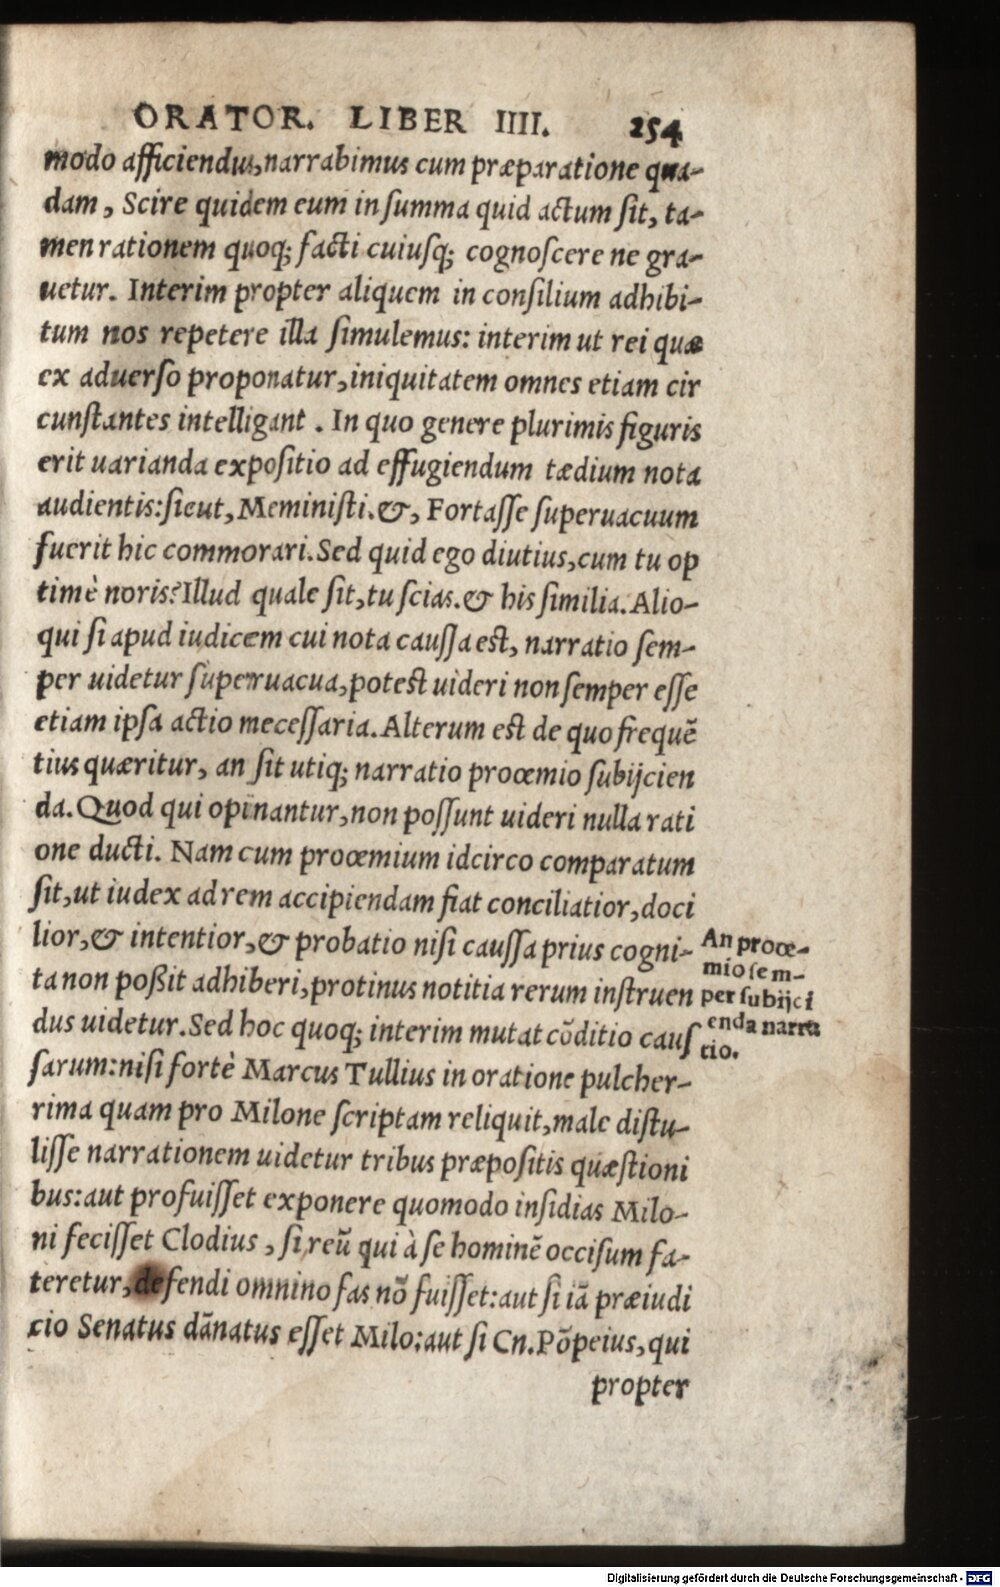 ORATOR. LIBER IIII. 254
modo afficiendus, narrabimus cum præparatione qua-
dam, Scire quidem eum in summa quid actum sit, ta-
men rationem quoq; facti cuiusq; cognoscere ne gra-
uetur. Interim propter aliquem in consilium adhibi-
tum nos repetere illa simulemus: interim ut rei quæ
ex aduerso proponatur, iniquitatem omnes etiam cir
cunstantes intelligant. In quo genere plurimis figuris
erit uarianda expositio ad effugiendum tædium nota
audientis: sicut, Meministi. &, Fortasse superuacuum
fuerit hic commorari. Sed quid ego diutius, cum tu op
timè noris? Illud quale sit, tu scias. & his similia. Alio-
qui si apud iudicem cui nota caussa est, narratio sem-
per uidetur superuacua, potest uideri non semper esse
etiam ipsa actio mecessaria. Alterum est de quo frequē
tius quæritur, an sit utiq; narratio proœmio subijcien
da. Quod qui opinantur, non possunt uideri nulla rati
one ducti. Nam cum proœmium idcirco comparatum
sit, ut iudex ad rem accipiendam fiat conciliatior, doci
lior, & intentior, & probatio nisi caussa prius cogni-
ta non poßit adhiberi, protinus notitia rerum instruen
dus uidetur. Sed hoc quoq; interim mutat cōditio caus
sarum: nisi fortè Marcus Tullius in oratione pulcher-
rima quam pro Milone scriptam reliquit, male distu-
lisse narrationem uidetur tribus præpositis quæstioni
bus: aut profuisset exponere quomodo insidias Milo-
ni fecisset Clodius, si reū qui à se hominē occisum fa-
teretur, defendi omnino fas nō fuisset: aut si iā præiudi
cio Senatus dānatus esset Milo: aut si Cn. Pōpeius, qui
propter
An proœ-
mio sem-
per subijci
enda narra
tio.
Digitalisierung gefördert durch die Deutsche Forschungsgemeinschaft - DFG